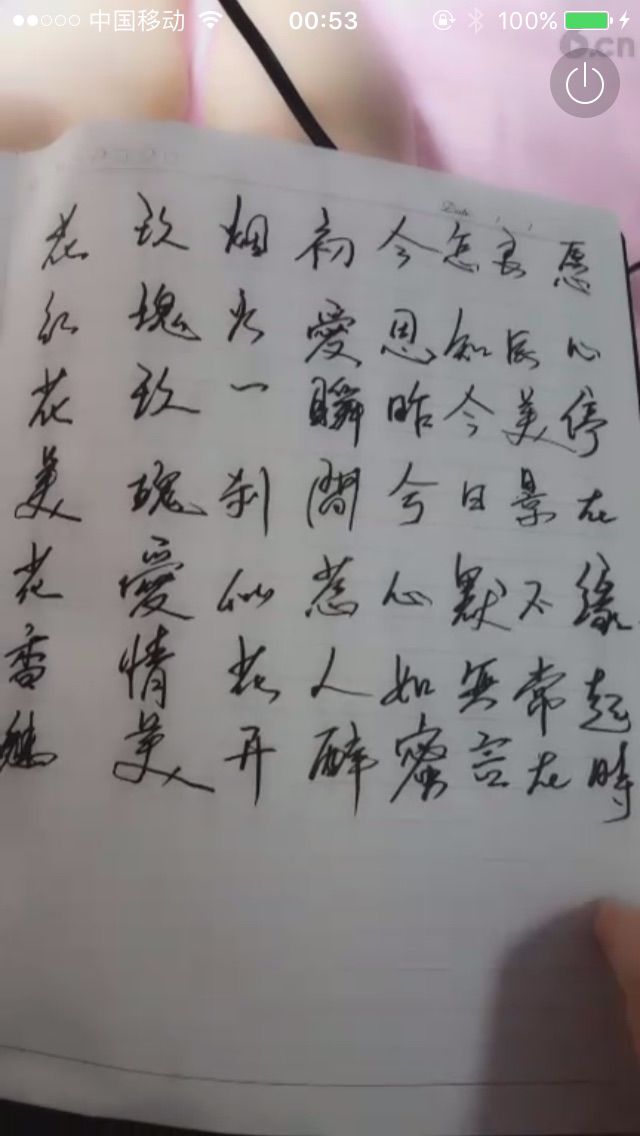 中国移动 00:53 100%
.cn
Date
花红花美花香魅
玫瑰玫瑰愛情美
烟火一刹似花开
初愛瞬間惹人醉
今恩昨兮心如蜜
怎知今日默無言
良辰美景不常在
愿心停在缘起時